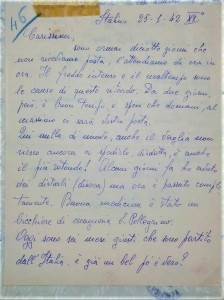 46
Italia, 25-1-42 XX°
Carissimi,
sono ormai diciotto giorni che
non vediamo posta, e attendiamo di ora in
ora. Il freddo intenso e il maltempo sono
le cause di questo ritardo. Da due giorni
poi è buon tempo e spero che domani, al
massimo ci sarà della posta.
In nulla di modo, anche il vaglia non
riesco ancora a spedirlo, disdetta, è anche
il più ritardo! Alcuni giorni fa ho avuto
dei disturbi (diarrea) ma ora è passato comple
tamente. Buona medicina è stato un
bicchiere di magnesia S. Pellegrino.
Oggi sono sei mesi giusti che sono partito
dall'Italia, è già un bel po' è vero?